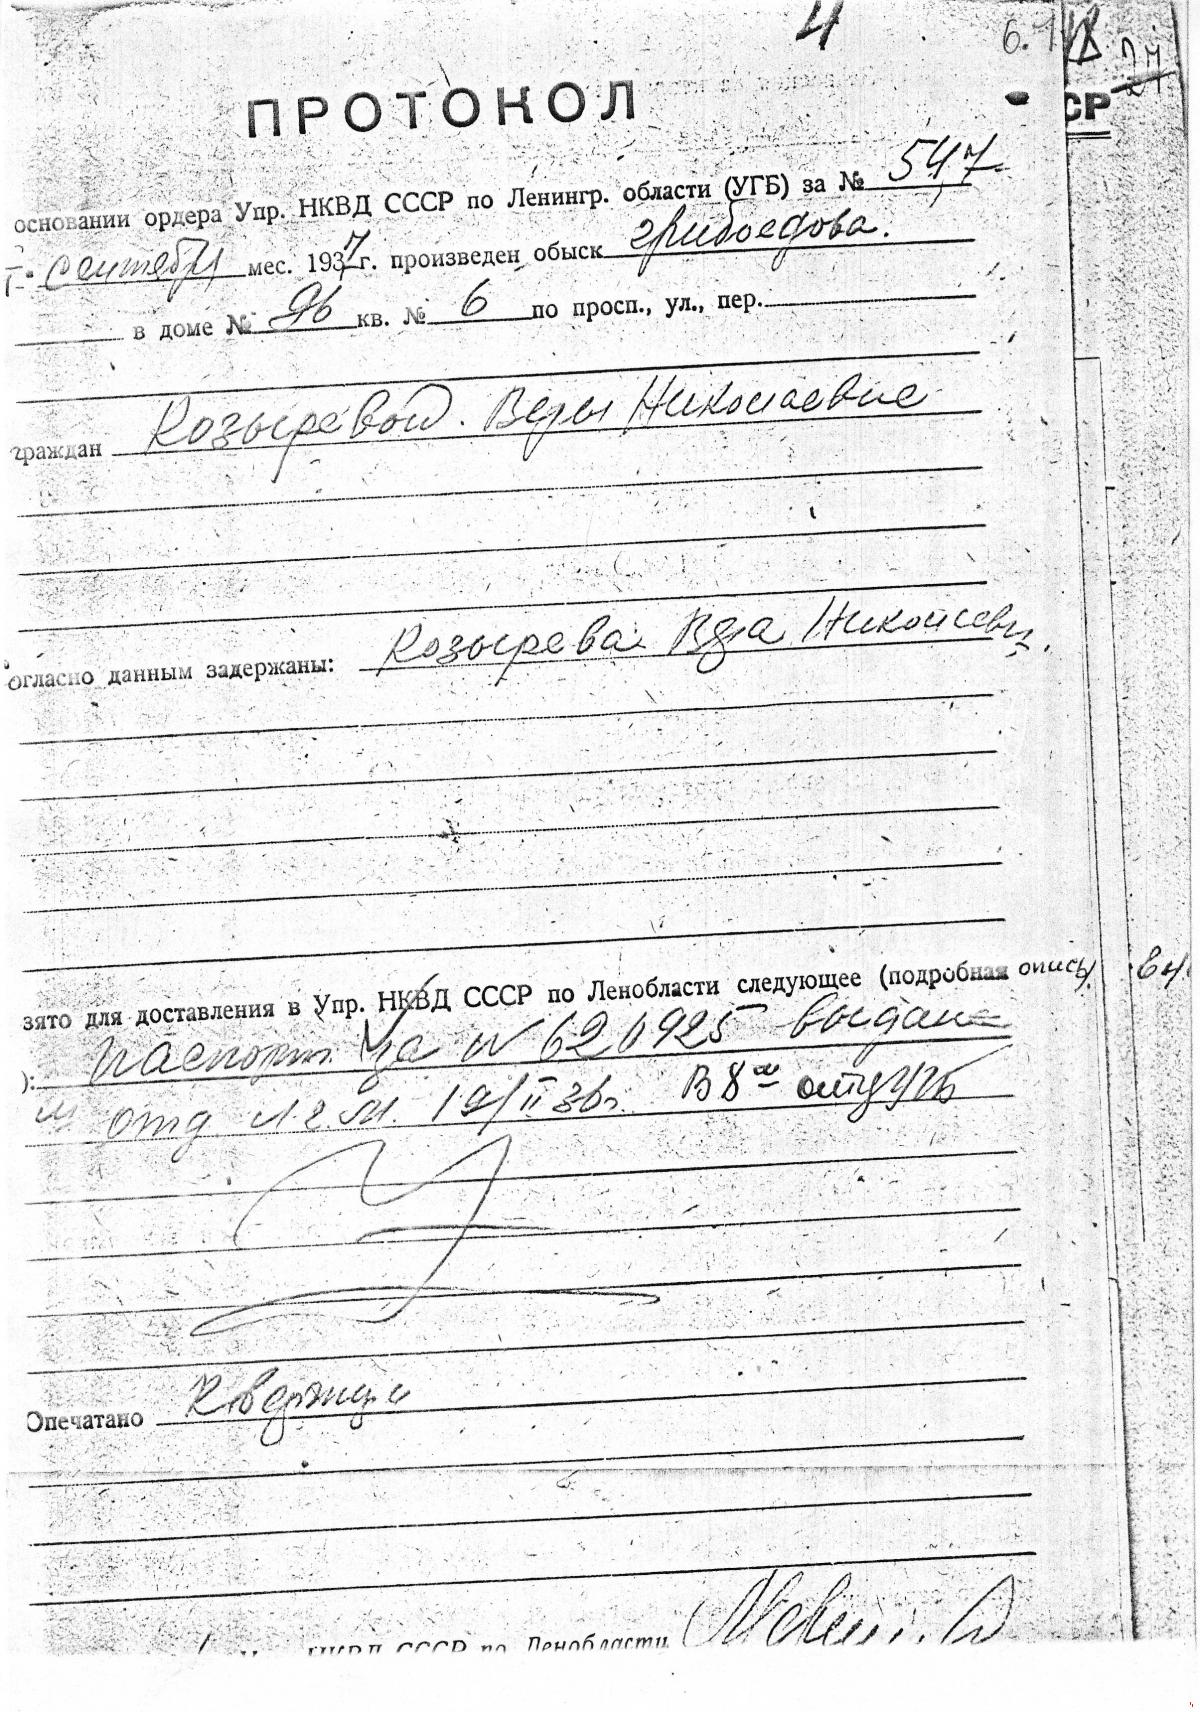 4
ПРОТОКОЛ
СР
основании ордера Упр. НКВД СССР по Ленингр. области (УГБ) за № 547
сентября мес. 1937 г. произведен обыск Грибоедова.
в доме № 96 кв. № 6 по просп., ул., пер.
граждан Козыревой Веры Николаевне
огласно данным задержаны: Козырева Вера Николаевн
зято для доставления в Упр. НКВД СССР по Ленобласти следующее (подробная опись).
): Паспорт за № 620925 выдан
отд Л.г.М. 19/II 36г. В 8ое отд УГБ
Опечатано
НКВД СССР по Ленобласти